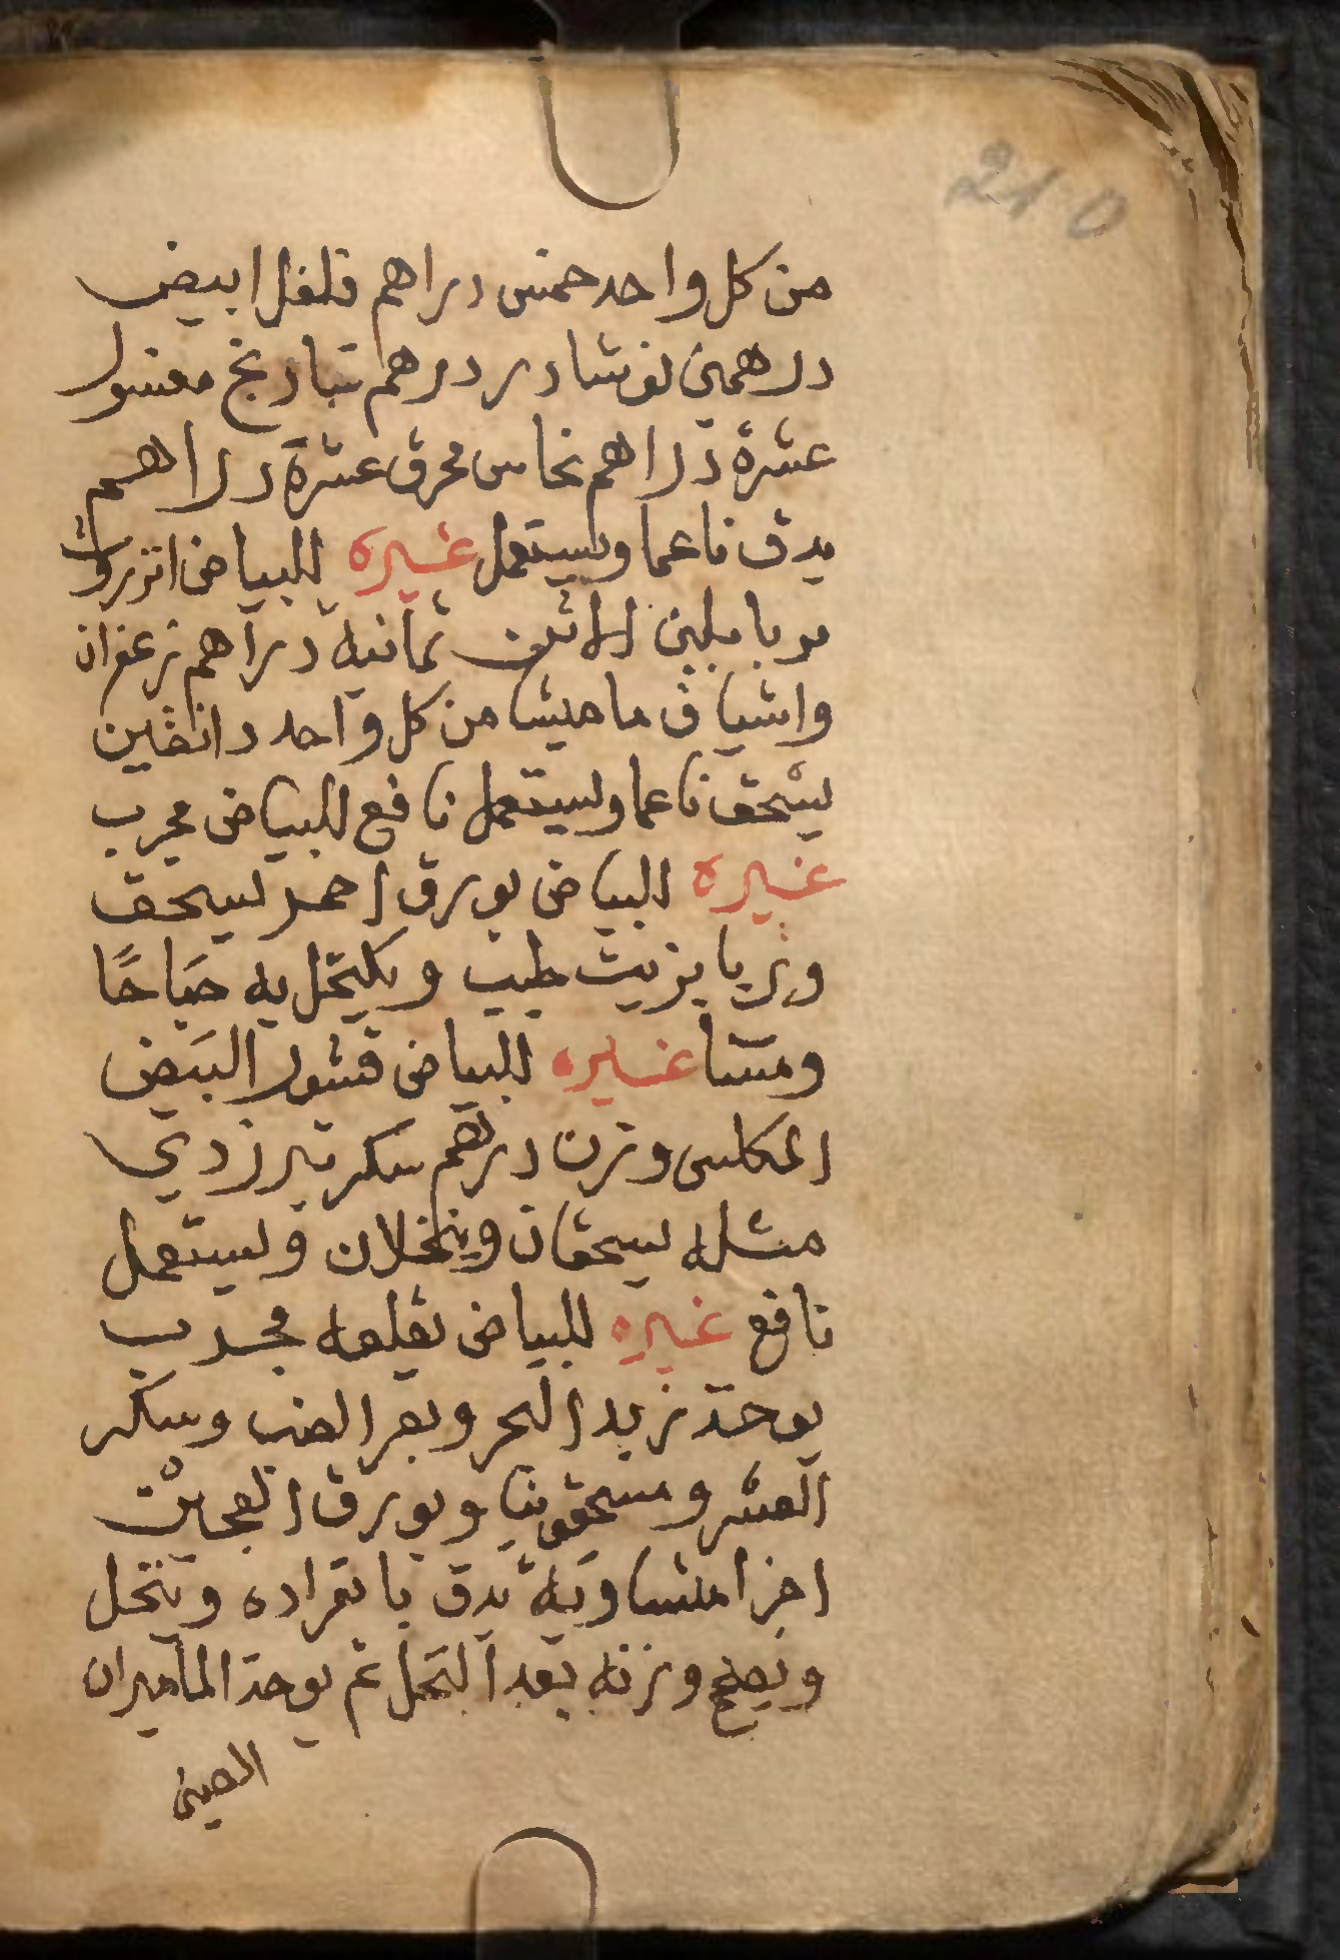 210
من كل واحد خمس دراهم فلفل ابيض
درهمين نوشادر درهم شادنج مغسول
عشرة دراهم نحاس محرق عشرة دراهم
يدق ناعما ويستعمل غيره للبياض انزروت
مربا بلبن الاتن ثمانية دراهم زعفران
واشياف ماميثا من كل واحد دانقين
يسحق ناعما ويستعمل نافع للبياض مجرب
غيره البياض بورق احمر يسحق
ويربا بزيت طيب ويكتحل به صباحًا
ومسا غيره للبياض قشور البيض
المكلس وزن درهم سكر تبرزدي
مثله يسحقان وينخلان ويستعمل
نافع غيره للبياض يقلعه مجرب
يوخذ زبد البحر وبعر الضب وسكر
العشر ومسحقونيا وبورق العجين
اجزا متساوية يدق بانفراده وينخل
ويصح وزنه بعد النخل ثم يوخذ الماميران
الصيني